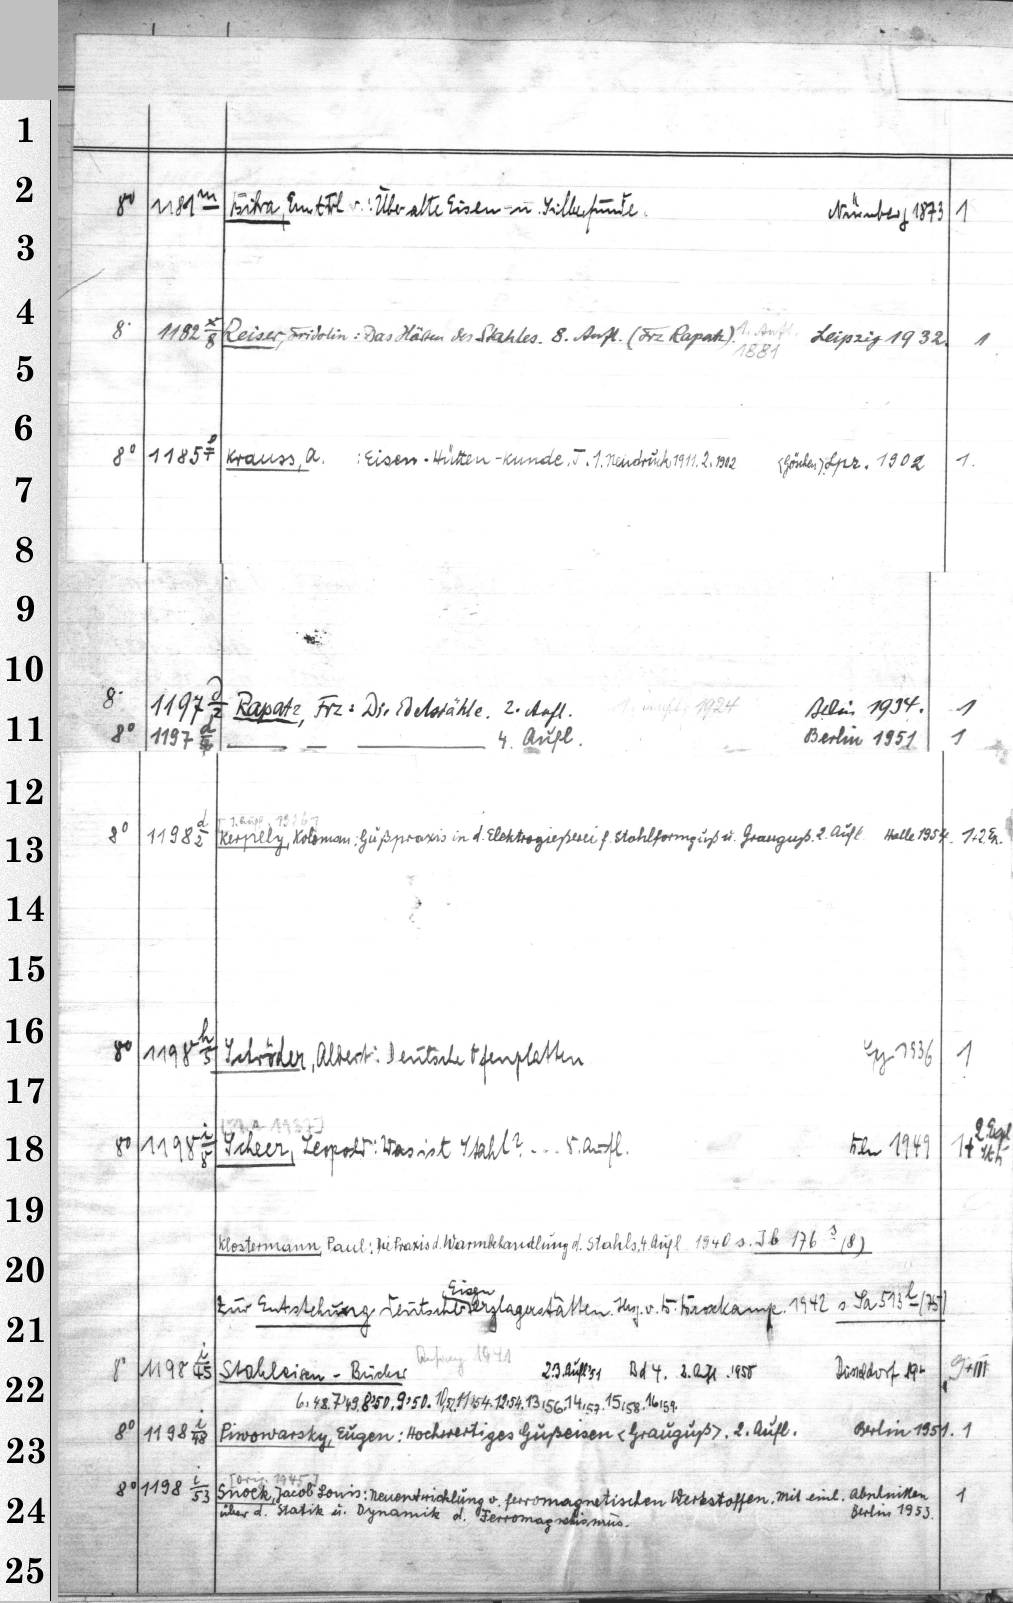 1
2
8° 1181 m Bibra, Ernst Frh v.: Über alte Eisen- u. Silberfunde. Nürnberg 1873 1
3
4
8° 1182 x/8 Reiser, Fridolin: Das Härten des Stahles. 8. Aufl. (Frz Rapatz). 1. Aufl. 1881 Leipzig 1932. 1
5
6
8° 1185 Krauss, A. : Eisen-Hütten-kunde. T. 1. Neudruck 1911. 2. 1902 <Göschen> Lpz. 1902 1.
7
8
9
10
8° 1197 d/2 Rapatz, Frz: Die Edelstähle. 2. Aufl. 1. Aufl. 1924 Berlin 1934. 1
11
8° 1197 d/4 — — — 4. Aufl. Berlin 1951 1
12
8° 1198 d/2 Kerpely, Koloman: Gußpraxis in d. Elektrogießerei f. Stahlformguß u. Grauguß. 2. Aufl. Halle 1954. 1+2.Ex.
13
14
15
16
8° 1198 h/5 Schröder, Albert: Deutsche Ofenplatten Lpz 1936 1
17
[1. A. 1937]
18
8° 1198 i/8 Scheer, Leopold: Was ist Stahl? ... 8. Aufl. Bln 1949 1+
19
Klostermann, Paul: Die Praxis d. Warmbehandlung d. Stahls, 4. Aufl 1940 s. Jb 176 3 (8)
20
Zur Entstehung deutscher Eisenerzlagerstätten. Hrsg. v. 1942 s. Sa 513 l (75)
21
8° 1198 i/45 Stahleisen-Bücher Anfang 1941 2.3. Aufl. 51 Bd 4. 2. Aufl. 1955 Düsseldorf 19-
22
6, 48. 7, 49, 8, 50, 9, 50. 10, 52, 11, 54. 12, 54. 13, 56. 14, 57. 15, 58. 16, 59.
8° 1198 i/48 Piwowarsky, Eugen: Hochwertiges Gußeisen <Grauguß>. 2. Aufl. Berlin 1951. 1
23
[Orig. 1945.]
8° 1198 i/53 Snoek, Jacob Louis: Neuentwicklung v. ferromagnetischen Werkstoffen. Mit einl. Abschnitten 1
24
über d. Statik u. Dynamik d. Ferromagnetismus. Berlin 1953.
25